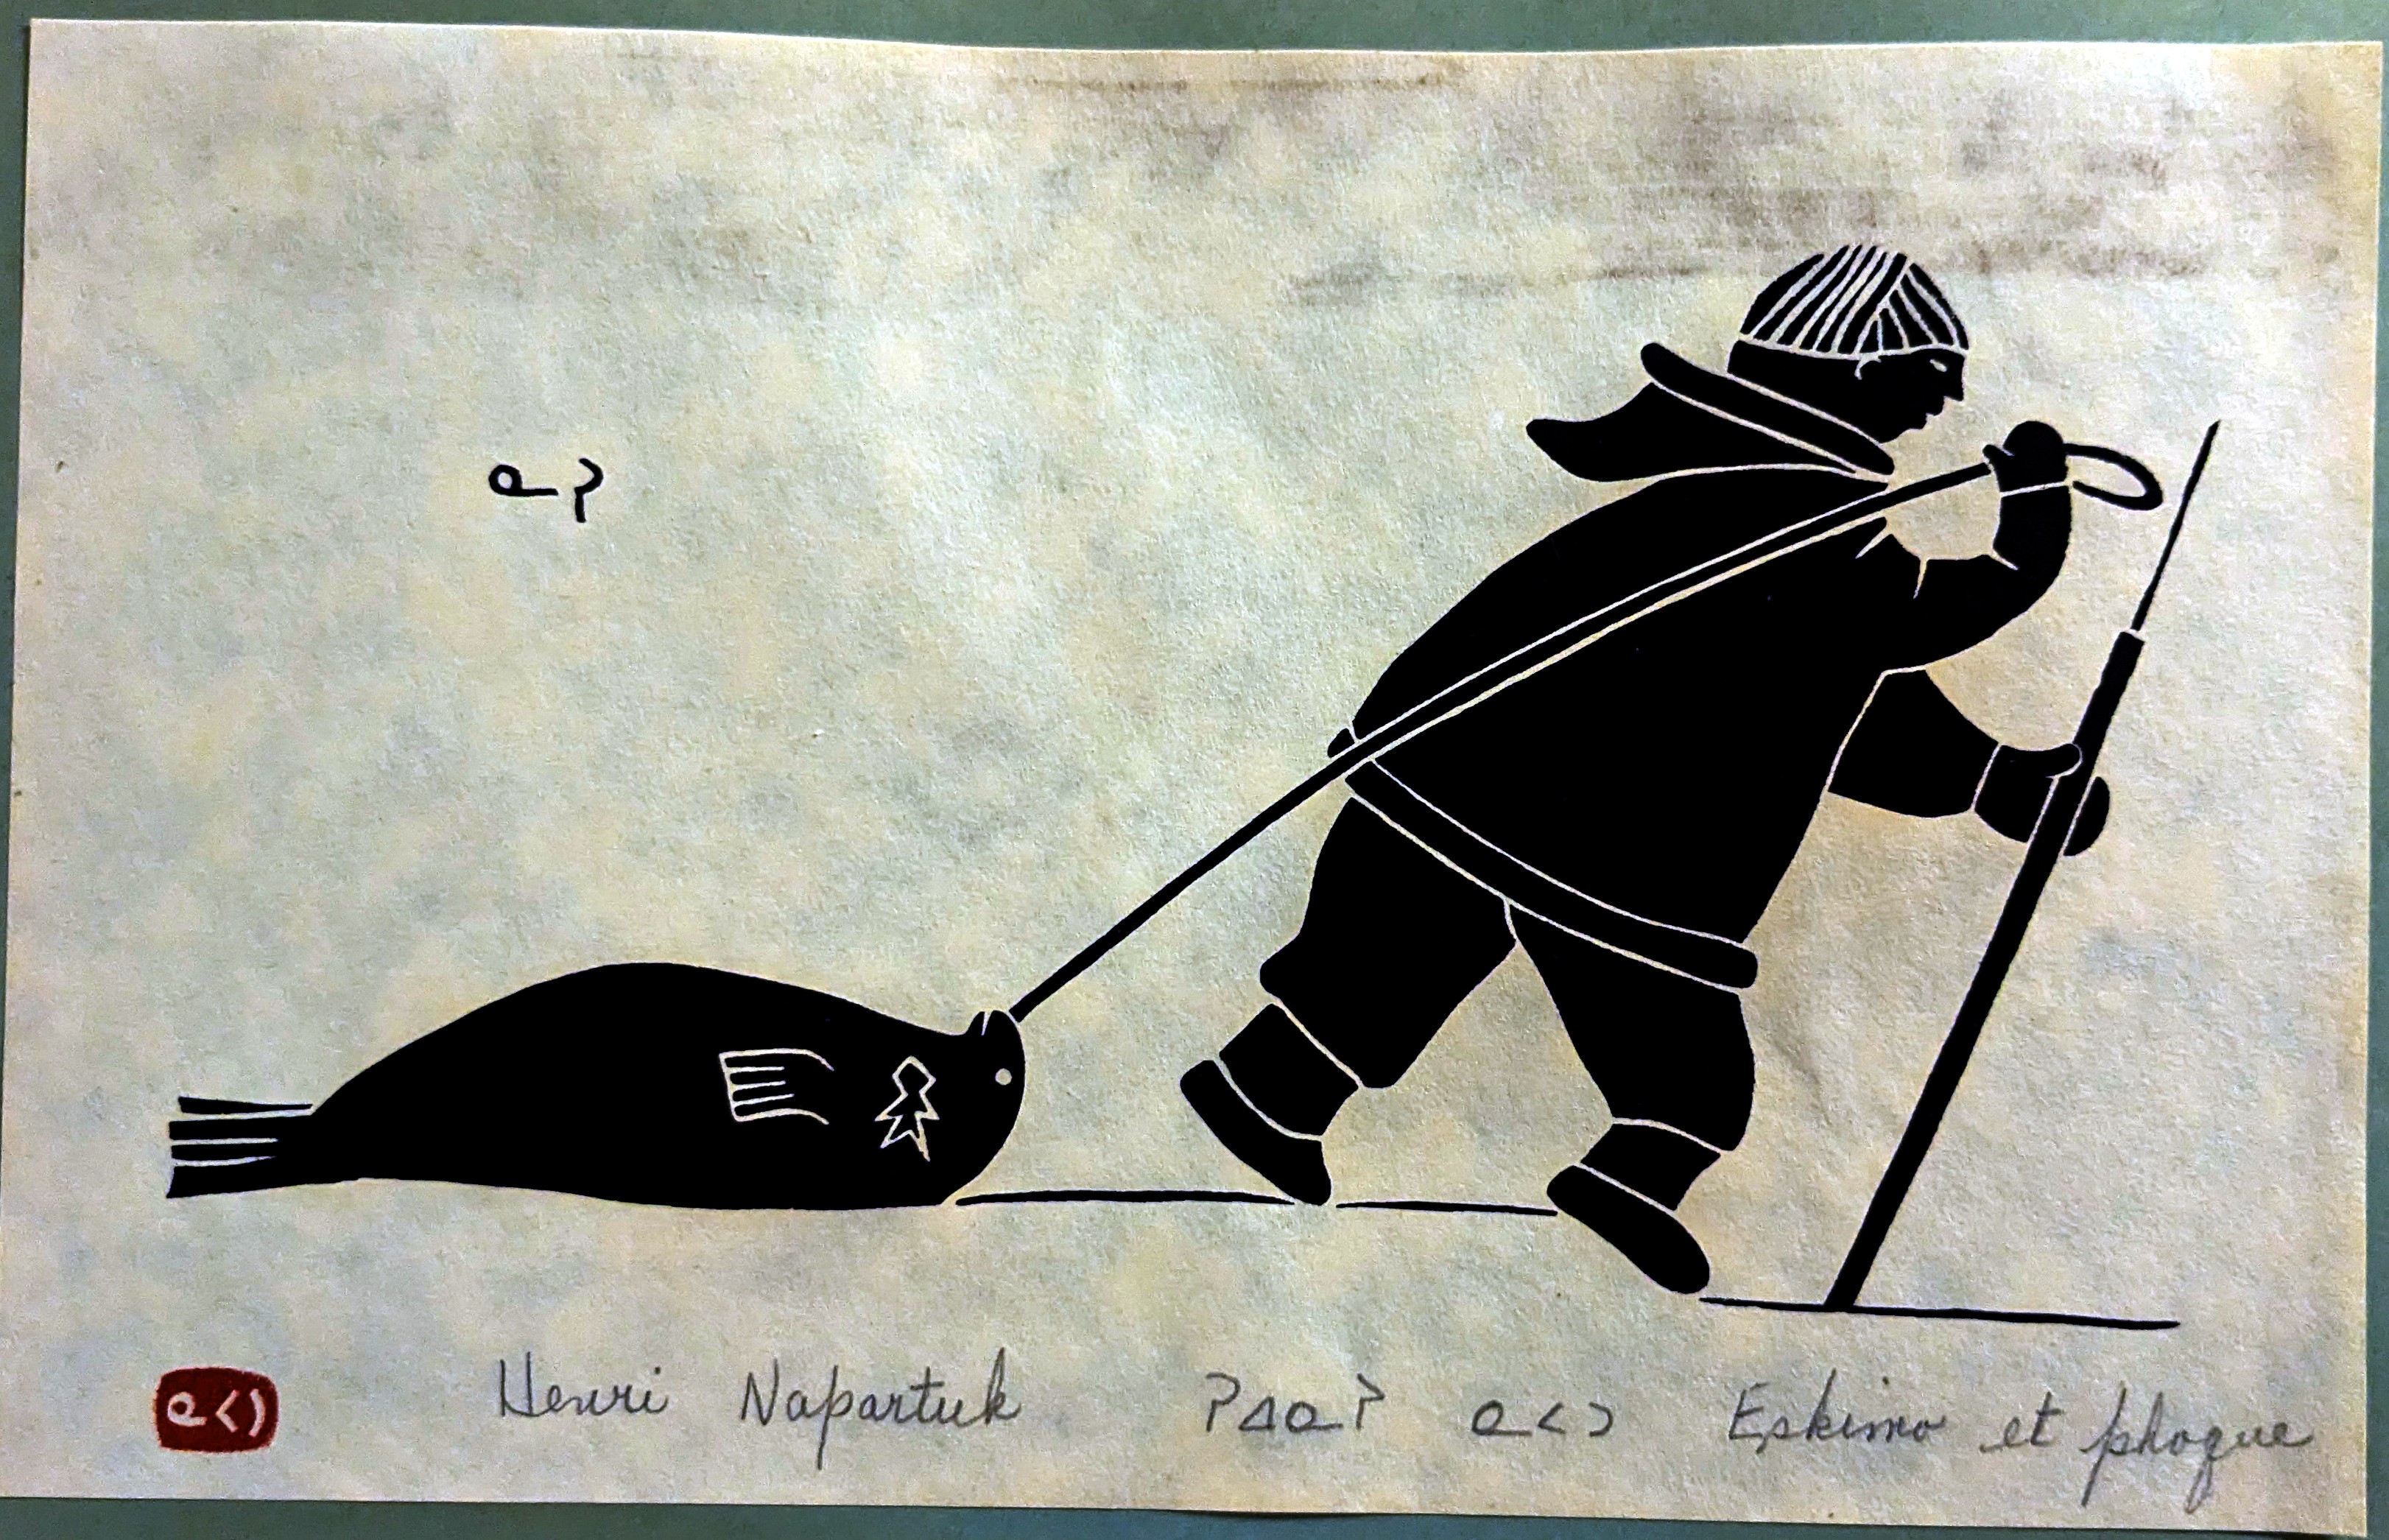 ᓇᐸᑐ Henri Napartuk ᓇᐸᑐ Eskimo et phoque